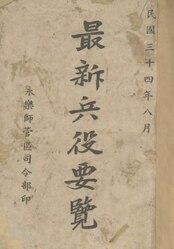 民國三十四年八月
最新兵役要覽
永樂師管區司令部印